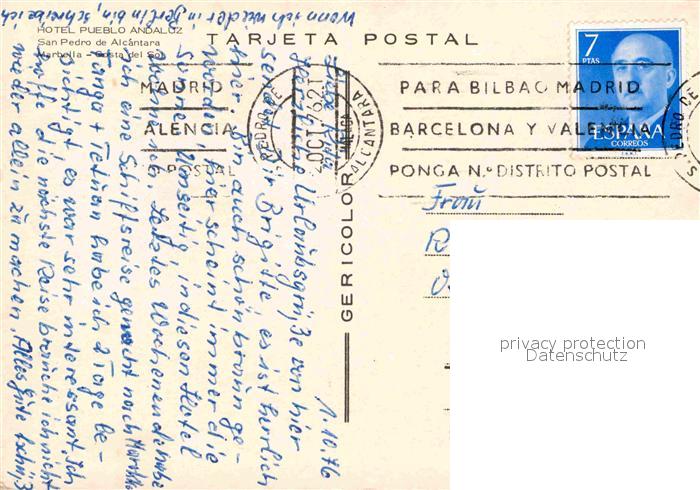 HOTEL PUEBLO ANDALUZ
San Pedro de Alcántara
Marbella - Costa del Sol
TARJETA POSTAL
GERICOLOR
7
PTAS
ESPAÑA
CORREOS
MADRID
ALENCIA
POSTAL
S. PEDRO DE ALCANTARA
MALAGA
2 OCT 76 21
PARA BILBAO MADRID
BARCELONA Y VALENCIA
PONGA N.º DISTRITO POSTAL
S. PEDRO DE
Frau
R
privacy protection
Datenschutz
1.10.76
Herzliche Urlaubsgrüße von hier
Brigitte, es ist herrlich
hier, bin auch schön braun ge-
worden, hier scheint immer die
Sonne. in diesem Hotel
wohne ich. Letztes Wochenende habe
ich eine Schiffsreise gemacht nach
Tanga + Tetuan habe ich 2 Tage be-
sichtigt es war sehr interessant. Ich
hoffe die nächste Reise brauche ich nicht
wieder allein zu machen. Alles gute
Wenn ich wieder in Berlin bin, schreibe ich